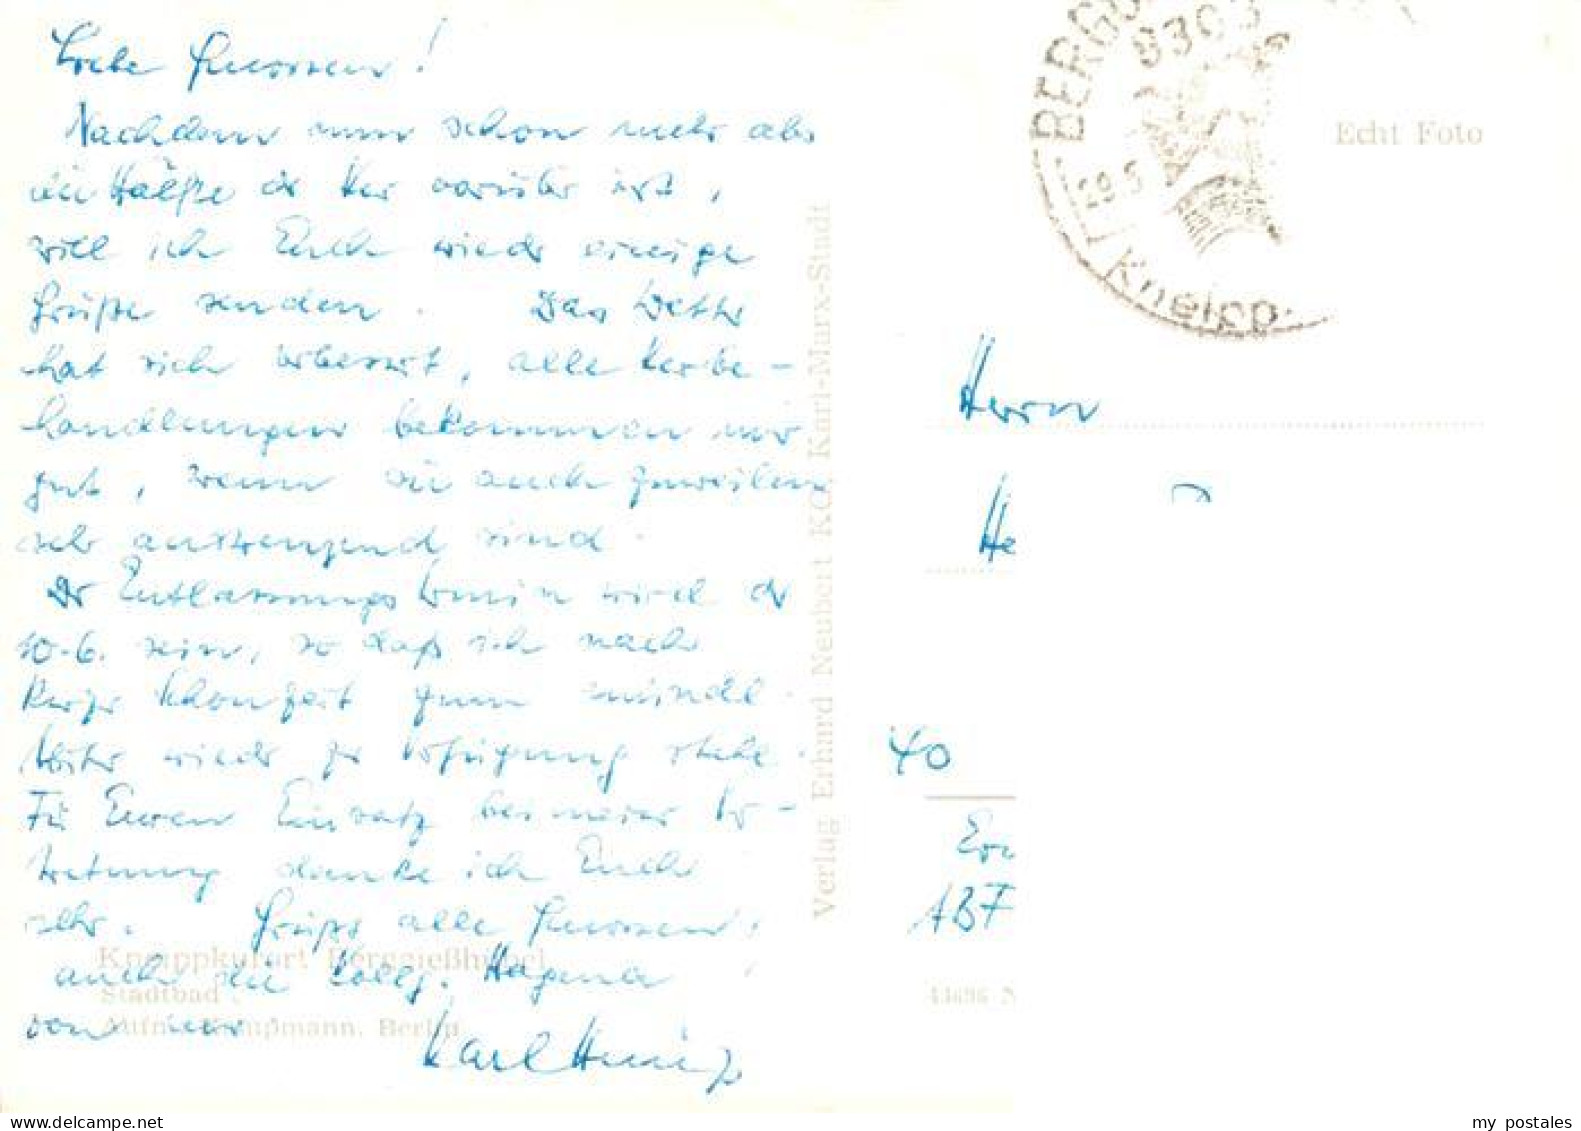 Liebe Genossen!
Nachdem nun schon mehr als
die Hälfte der Kur vorüber ist,
will ich Euch wieder einige
Grüße senden. Das Wetter
hat sich verbessert, alle Kurbe-
handlungen bekommen mir
gut, wenn sie auch zuweilen
sehr anstrengend sind.
Der Entlassungstermin wird der
10.6. sein, so daß ich nach
kurzer Schonzeit zum
wieder zur Verfügung stehe.
Für Euren Einsatz bei meiner Ver-
tretung danke ich Euch
sehr. Grüße alle Genossen,
auch die Kolln. Hagena
von
Karl
Kneippkurort Berggießhübel
Stadtbad
Aufn. Kaupmann, Berlin
Verlag Erhard Neubert KG, Karl-Marx-Stadt
BERGG
8303
29.5
Kneipp
Echt Foto
Herrn
He
40
ABF
my postales